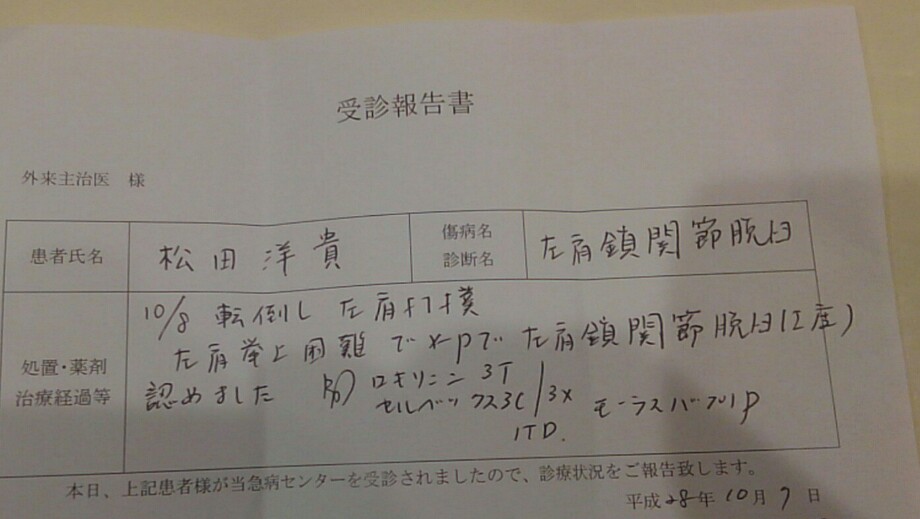 受診報告書
外来主治医 様
患者氏名 松田洋貴 傷病名 診断名 左肩鎖関節脱臼
処置・薬剤 治療経過等
10/8 転倒し 左肩打撲
左肩挙上困難でX-Pで左肩鎖関節脱臼(I度)
認めました ロキソニン 3T
セルベックス3C 3x モーラスパップ1P
1TD.
本日、上記患者様が当急病センターを受診されましたので、診療状況をご報告致します。
平成28年10月9日